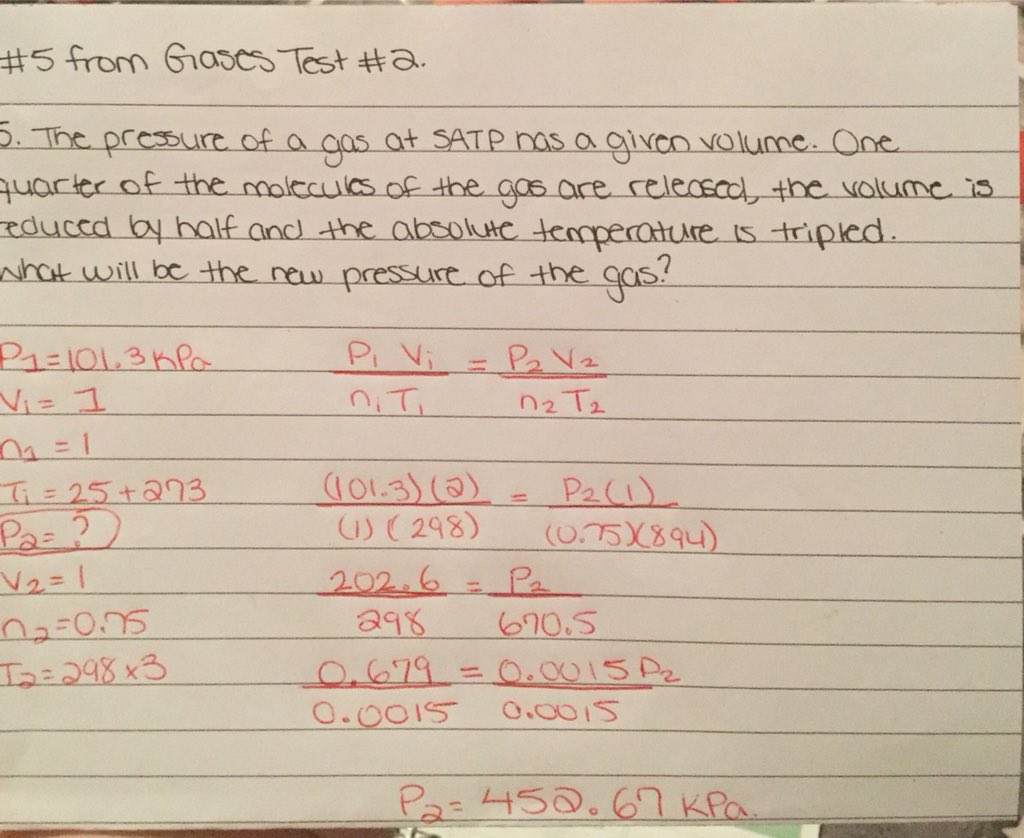 #5 from Gases Test #2.
5. The pressure of a gas at SATP has a given volume. One
quarter of the molecules of the gas are released, the volume is
reduced by half and the absolute temperature is tripled.
What will be the new pressure of the gas?
P1 = 101.3 kPa
V1 = 1
n1 = 1
T1 = 25 + 273
P2 = ?
V2 = 1
n2 = 0.75
T2 = 298 x 3
P1 V1 = P2 V2
n1 T1 n2 T2
(101.3)(2) = P2(1)
(1)(298) (0.75)(894)
202.6 = P2
298 670.5
0.679 = 0.0015 P2
0.0015 0.0015
P2 = 452.67 kPa.